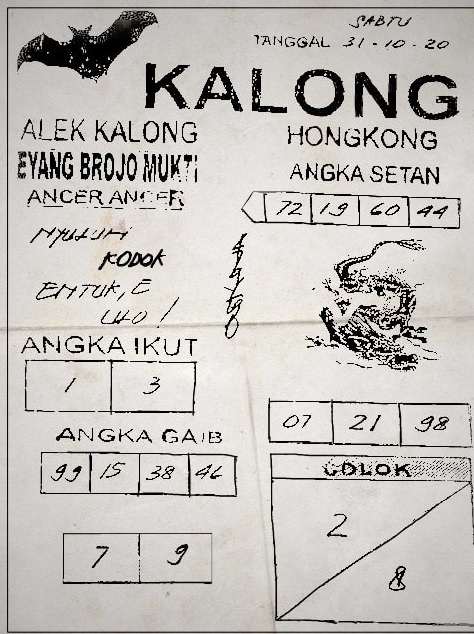 SABTU
TANGGAL 31-10-20
KALONG
ALEK KALONG
EYANG BROJO MUKTI
ANCER ANCER
HONGKONG
ANGKA SETAN
72 19 60 44
KODOK
ENTUK, E
ULO!
ANGKA IKUT
1 3
07 21 98
ANGKA GAIB
99 15 38 46
COLOK
2
8
7 9